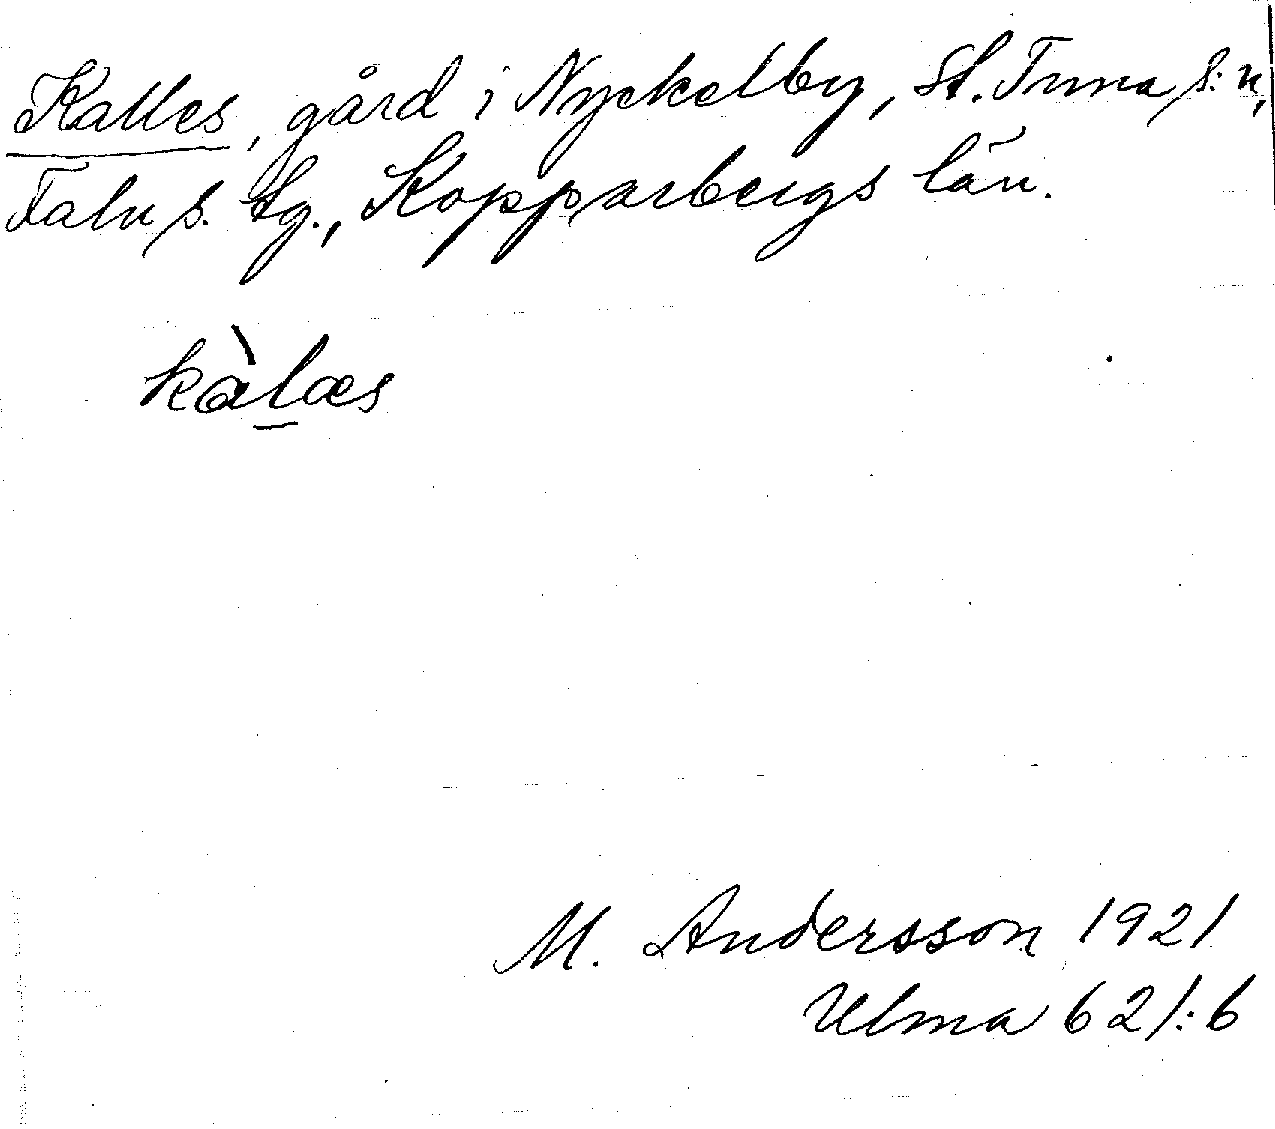 Kalles, gård i Nyckelby, St. Tuna s:n,
Falu s. tg., Kopparbergs län.
kàlæs
M. Andersson 1921
Ulma 621:6